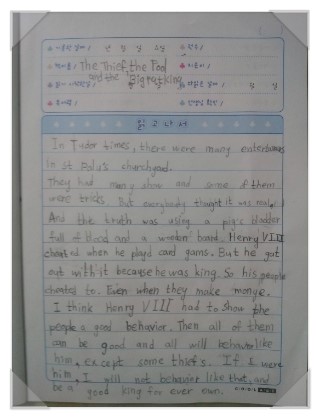 The Thief, the Fool
and the Big fat king
읽고 나서
In Tudor times, there were many entertainers
in St Paul's churchyard.
They had many show and some of them
were tricks. But everybody thought it was real!
And the truth was using a pig's bladder
full of blood and a wooden board. Henry VIII
cheated when he playd card gams. But he got
out with it because he was king. So his people
cheated to. Even when they make monye.
I think Henry VIII had to show the
people a good behavior. Then all of them
can be good and all will behavior like
him, except some thiefs. If I were
him, I will not behavior like that, and
be a good king for ever own.